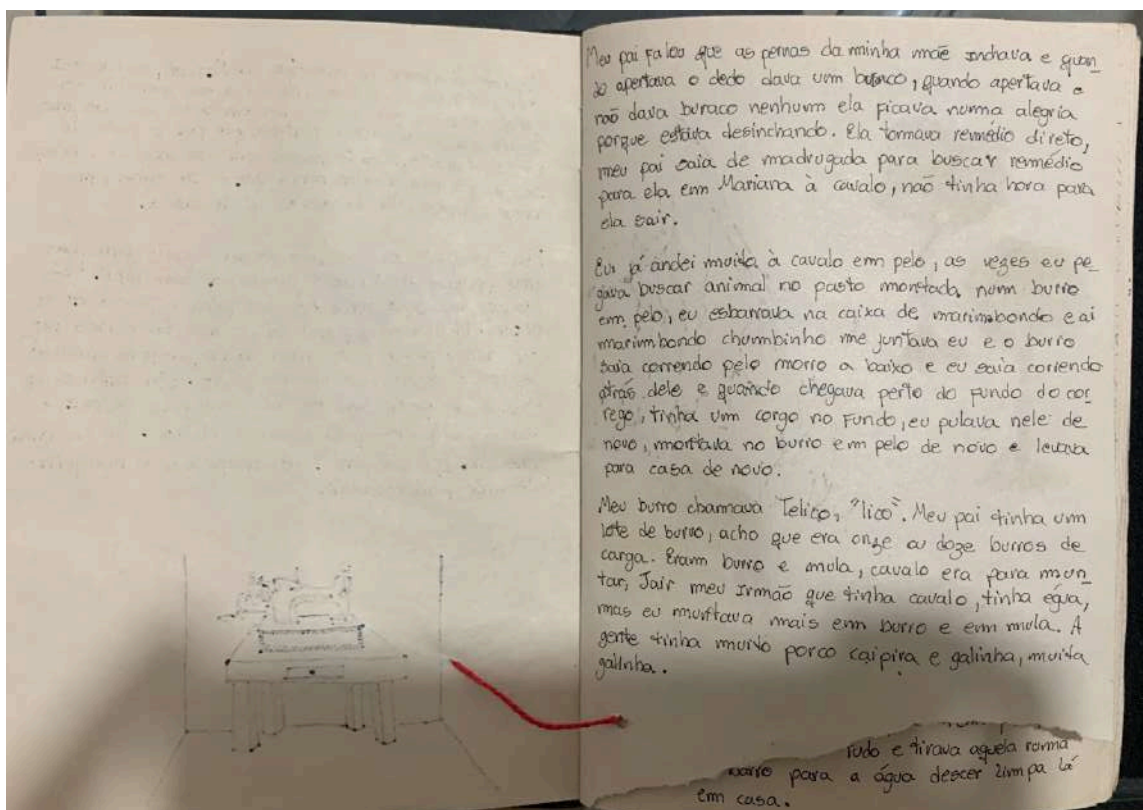 Meu pai falou que as pernas da minha mãe inchava e quan
do apertava o dedo dava um buraco, quando apertava e
não dava buraco nenhum ela ficava numa alegria
porque estava desinchando. Ela tomava remédio direto,
meu pai saia de madrugada para buscar remédio
para ela em Mariana à cavalo, não tinha hora para
ela sair.
Eu já andei muita à cavalo em pelo, as vezes eu pe
gava buscar animal no pasto montada num burro
em pelo, eu esbarrava na caixa de marimbondo e ai
marimbondo chumbinho me juntava eu e o burro
saia correndo pelo morro a baixo e eu saia correndo
atrás dele e quando chegava perto do fundo do cor
rego, tinha um corgo no fundo, eu pulava nele de
novo, montava no burro em pelo de novo e levava
para casa de novo.
Meu burro chamava Telico, "lico". Meu pai tinha um
lote de burro, acho que era onze ou doze burros de
carga. Eram burro e mula, cavalo era para mon
tar, Jair meu irmão que tinha cavalo, tinha égua,
mas eu muntava mais em burro e em mula. A
gente tinha muito porco caipira e galinha, muita
galinha.
tudo e tirava aquela
para a água descer limpa lá
em casa.